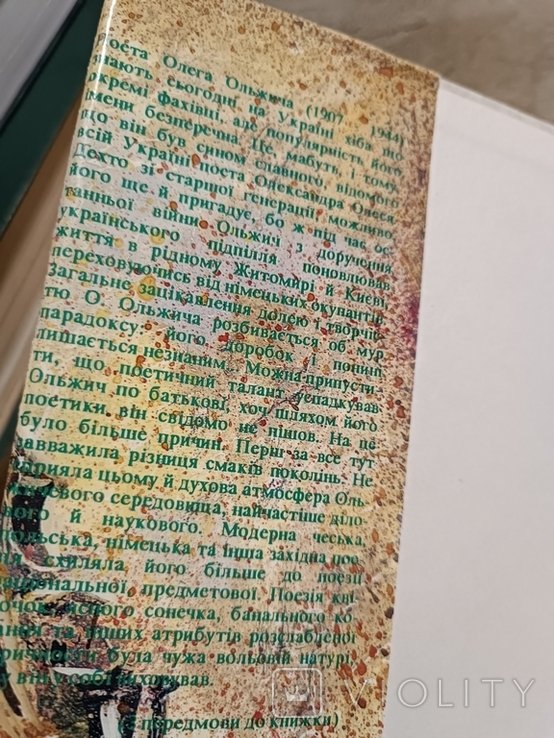 оета Олега Ольжича (1907 1944)
нають сьогодні на Україні хіба що
окремі фахівці, але популярність його
імени безперечна. Це, мабуть, і тому,
що він був сином славного, відомого
всій Україні поета Олександра Олеся.
Дехто зі старшої генерації, можливо,
його ще й пригадує, бо ж під час ос-
танньої війни Ольжич з доручення
українського підпілля поновлював
життя в рідному Житомирі й Києві,
переховуючись від німецьких окупантів.
Загальне зацікавлення долею і творчіс-
тю О. Ольжича розбивається об мур
парадоксу: його доробок і понині
лишається незнаним. Можна припусти-
ти, що поетичний талант успадкував
Ольжич по батькові, хоч шляхом його
поетики він свідомо не пішов. На це
було більше причин. Перш за все тут
заважила різниця смаків поколінь. Не
сприяла цьому й духова атмосфера Оль
жичевого середовища, найчастіше діло-
вого й наукового. Модерна чеська,
польська, німецька та інша західна пое
зія схиляла його більше до поезії
раціональної, предметової. Поезія кві
точок, ясного сонечка, банального ко
хання та інших атрибутів розслабленої
ліричності була чужа вольовій натурі,
яку він у собі виховував.
(З передмови до книжки)
VIOLITY